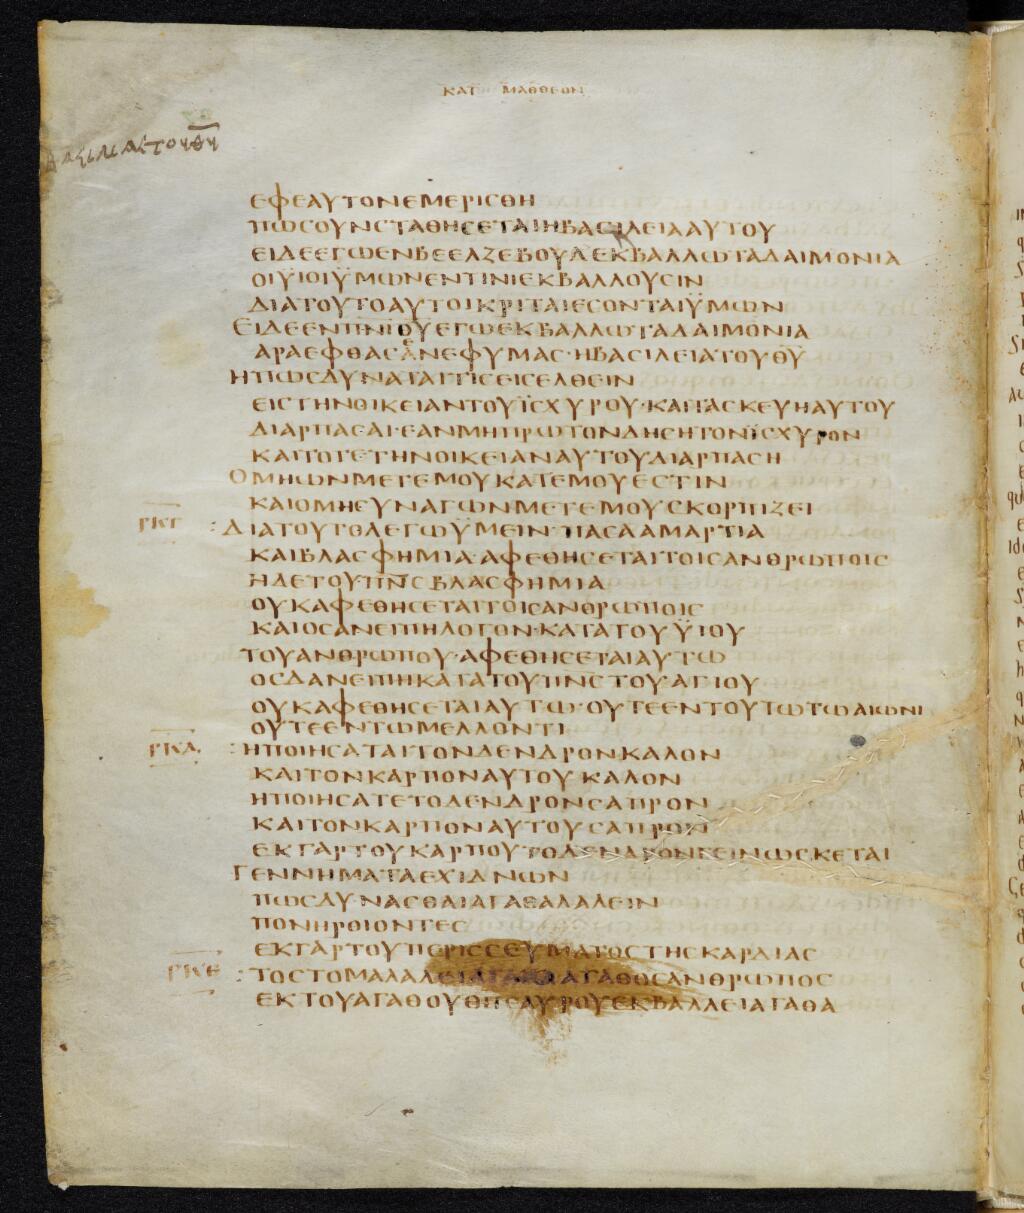 ΚΑΤ ΜΑΘΘΕΟΝ
ΕΦΕΑΥΤΟΝΕΜΕΡΙΣΘΗ
ΠΩΣΟΥΝΣΤΑΘΗΣΕΤΑΙΗΒΑΣΙΛΕΙΑΑΥΤΟΥ
ΕΙΔΕΕΓΩΕΝΒΕΕΛΖΕΒΟΥΛΕΚΒΑΛΛΩΤΑΔΑΙΜΟΝΙΑ
ΟΙΫΙΟΙΫΜΩΝΕΝΤΙΝΙΕΚΒΑΛΛΟΥΣΙΝ
ΔΙΑΤΟΥΤΟΑΥΤΟΙΚΡΙΤΑΙΕΣΟΝΤΑΙΫΜΩΝ
ΕΙΔΕΕΝΠΝΙΘΥΕΓΩΕΚΒΑΛΛΩΤΑΔΑΙΜΟΝΙΑ
ΑΡΑΕΦΘΑΣΕΝΕΦΥΜΑΣ·ΗΒΑΣΙΛΕΙΑΤΟΥΘΥ
ΗΠΩΣΔΥΝΑΤΑΙΤΙΣΕΙΣΕΛΘΕΙΝ
ΕΙΣΤΗΝΟΙΚΕΙΑΝΤΟΥΪΣΧΥΡΟΥ·ΚΑΙΤΑΣΚΕΥΗΑΥΤΟΥ
ΔΙΑΡΠΑΣΑΙ·ΕΑΝΜΗΠΡΩΤΟΝΔΗΣΗΤΟΝΪΣΧΥΡΟΝ
ΚΑΙΤΟΤΕΤΗΝΟΙΚΕΙΑΝΑΥΤΟΥΔΙΑΡΠΑΣΗ
ΟΜΗΩΝΜΕΤΕΜΟΥΚΑΤΕΜΟΥΕΣΤΙΝ
ΚΑΙΟΜΗΣΥΝΑΓΩΝΜΕΤΕΜΟΥΣΚΟΡΠΙΖΕΙ
ΡΚΓ :ΔΙΑΤΟΥΤΟΛΕΓΩΫΜΕΙΝ·ΠΑΣΑΑΜΑΡΤΙΑ
ΚΑΙΒΛΑΣΦΗΜΙΑ·ΑΦΕΘΗΣΕΤΑΙΤΟΙΣΑΝΘΡΩΠΟΙΣ
ΗΔΕΤΟΥΠΝΣΒΛΑΣΦΗΜΙΑ
ΟΥΚΑΦΕΘΗΣΕΤΑΙΤΟΙΣΑΝΘΡΩΠΟΙΣ
ΚΑΙΟΣΑΝΕΙΠΗΛΟΓΟΝ·ΚΑΤΑΤΟΥΫΙΟΥ
ΤΟΥΑΝΘΡΩΠΟΥ·ΑΦΕΘΗΣΕΤΑΙΑΥΤΩ
ΟΣΔΑΝΕΙΠΗΚΑΤΑΤΟΥΠΝΣΤΟΥΑΓΙΟΥ
ΟΥΚΑΦΕΘΗΣΕΤΑΙΑΥΤΩ·ΟΥΤΕΕΝΤΟΥΤΩΤΩΑΙΩΝΙ
ΟΥΤΕΕΝΤΩΜΕΛΛΟΝΤΙ
ΡΚΔ :ΗΠΟΙΗΣΑΤΑΙΤΟΝΔΕΝΔΡΟΝΚΑΛΟΝ
ΚΑΙΤΟΝΚΑΡΠΟΝΑΥΤΟΥΚΑΛΟΝ
ΗΠΟΙΗΣΑΤΕΤΟΔΕΝΔΡΟΝΣΑΠΡΟΝ
ΚΑΙΤΟΝΚΑΡΠΟΝΑΥΤΟΥΣΑΠΡΟΝ
ΕΚΓΑΡΤΟΥΚΑΡΠΟΥΤΟΔΕΝΔΡΟΝΓΕΙΝΩΣΚΕΤΑΙ
ΓΕΝΝΗΜΑΤΑΕΧΙΔΝΩΝ
ΠΩΣΔΥΝΑΣΘΑΙΑΓΑΘΑΛΑΛΕΙΝ
ΠΟΝΗΡΟΙΟΝΤΕΣ
ΕΚΓΑΡΤΟΥΠΕΡΙΣΣΕΥΜΑΤΟΣΤΗΣΚΑΡΔΙΑΣ
ΡΚΕ :ΤΟΣΤΟΜΑΛΑΛΕΙΑΓΑΘΑΑΓΑΘΟΣΑΝΘΡΩΠΟΣ
ΕΚΤΟΥΑΓΑΘΟΥΘΗΣΑΥΡΟΥΕΚΒΑΛΛΕΙΑΓΑΘΑ